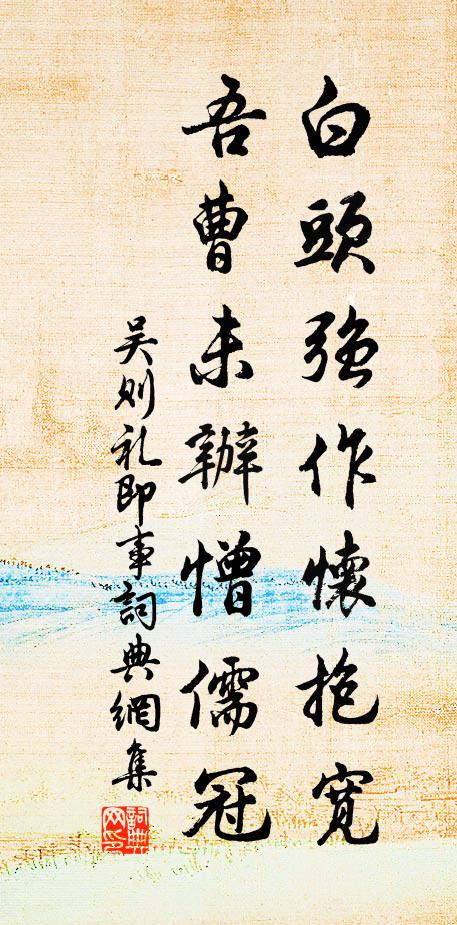 白頭強作懷抱寬
吾曹未辦憎儒冠
吴则礼即事詞典網集
詞典网印